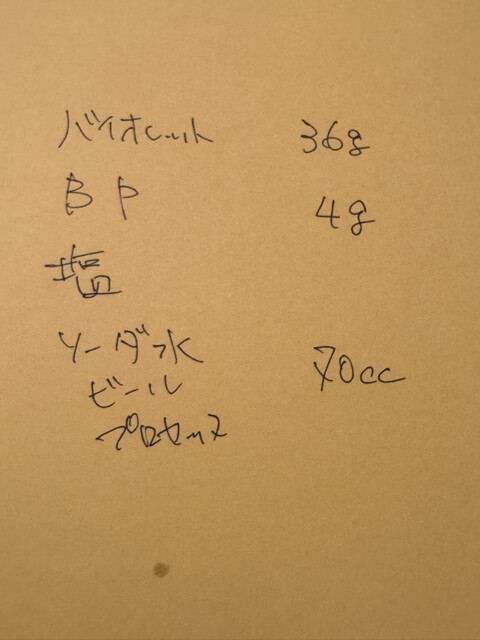 バイオレット 36g
BP 4g
塩
ソーダ水
ビール 70cc
プロセッス